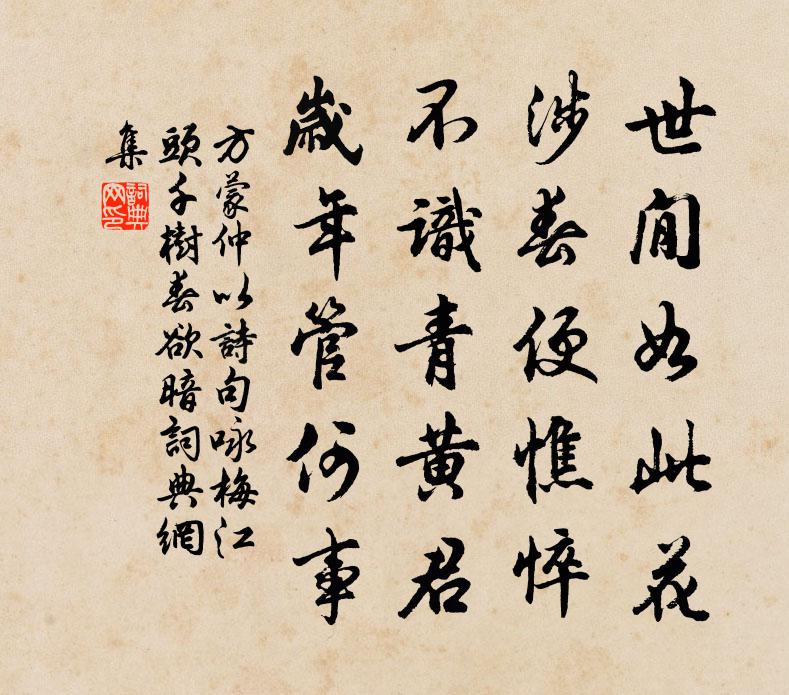 世间如此花
涉春便憔悴
不識青黄君
歲年管何事
方蒙仲以詩句咏梅江
頭千樹春欲暗詞典網
集
詞典
网印